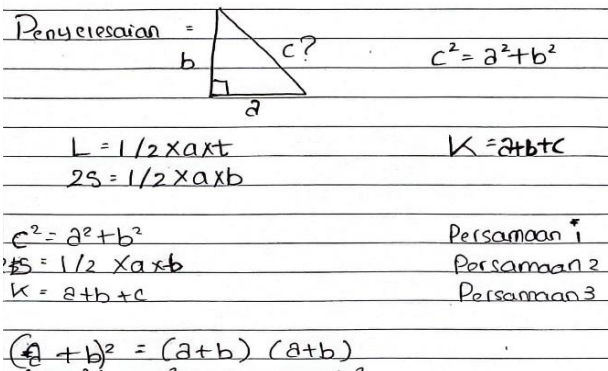 Penyelesaian =
b
c?
c² = a² + b²
a
L = 1/2 x a x t
K = a+b+c
2S = 1/2 x a x b
c² = a² + b² Persamaan 1
= 1/2 x a x b Persamaan 2
K = a + b + c Persamaan 3
(a + b)² = (a+b) (a+b)